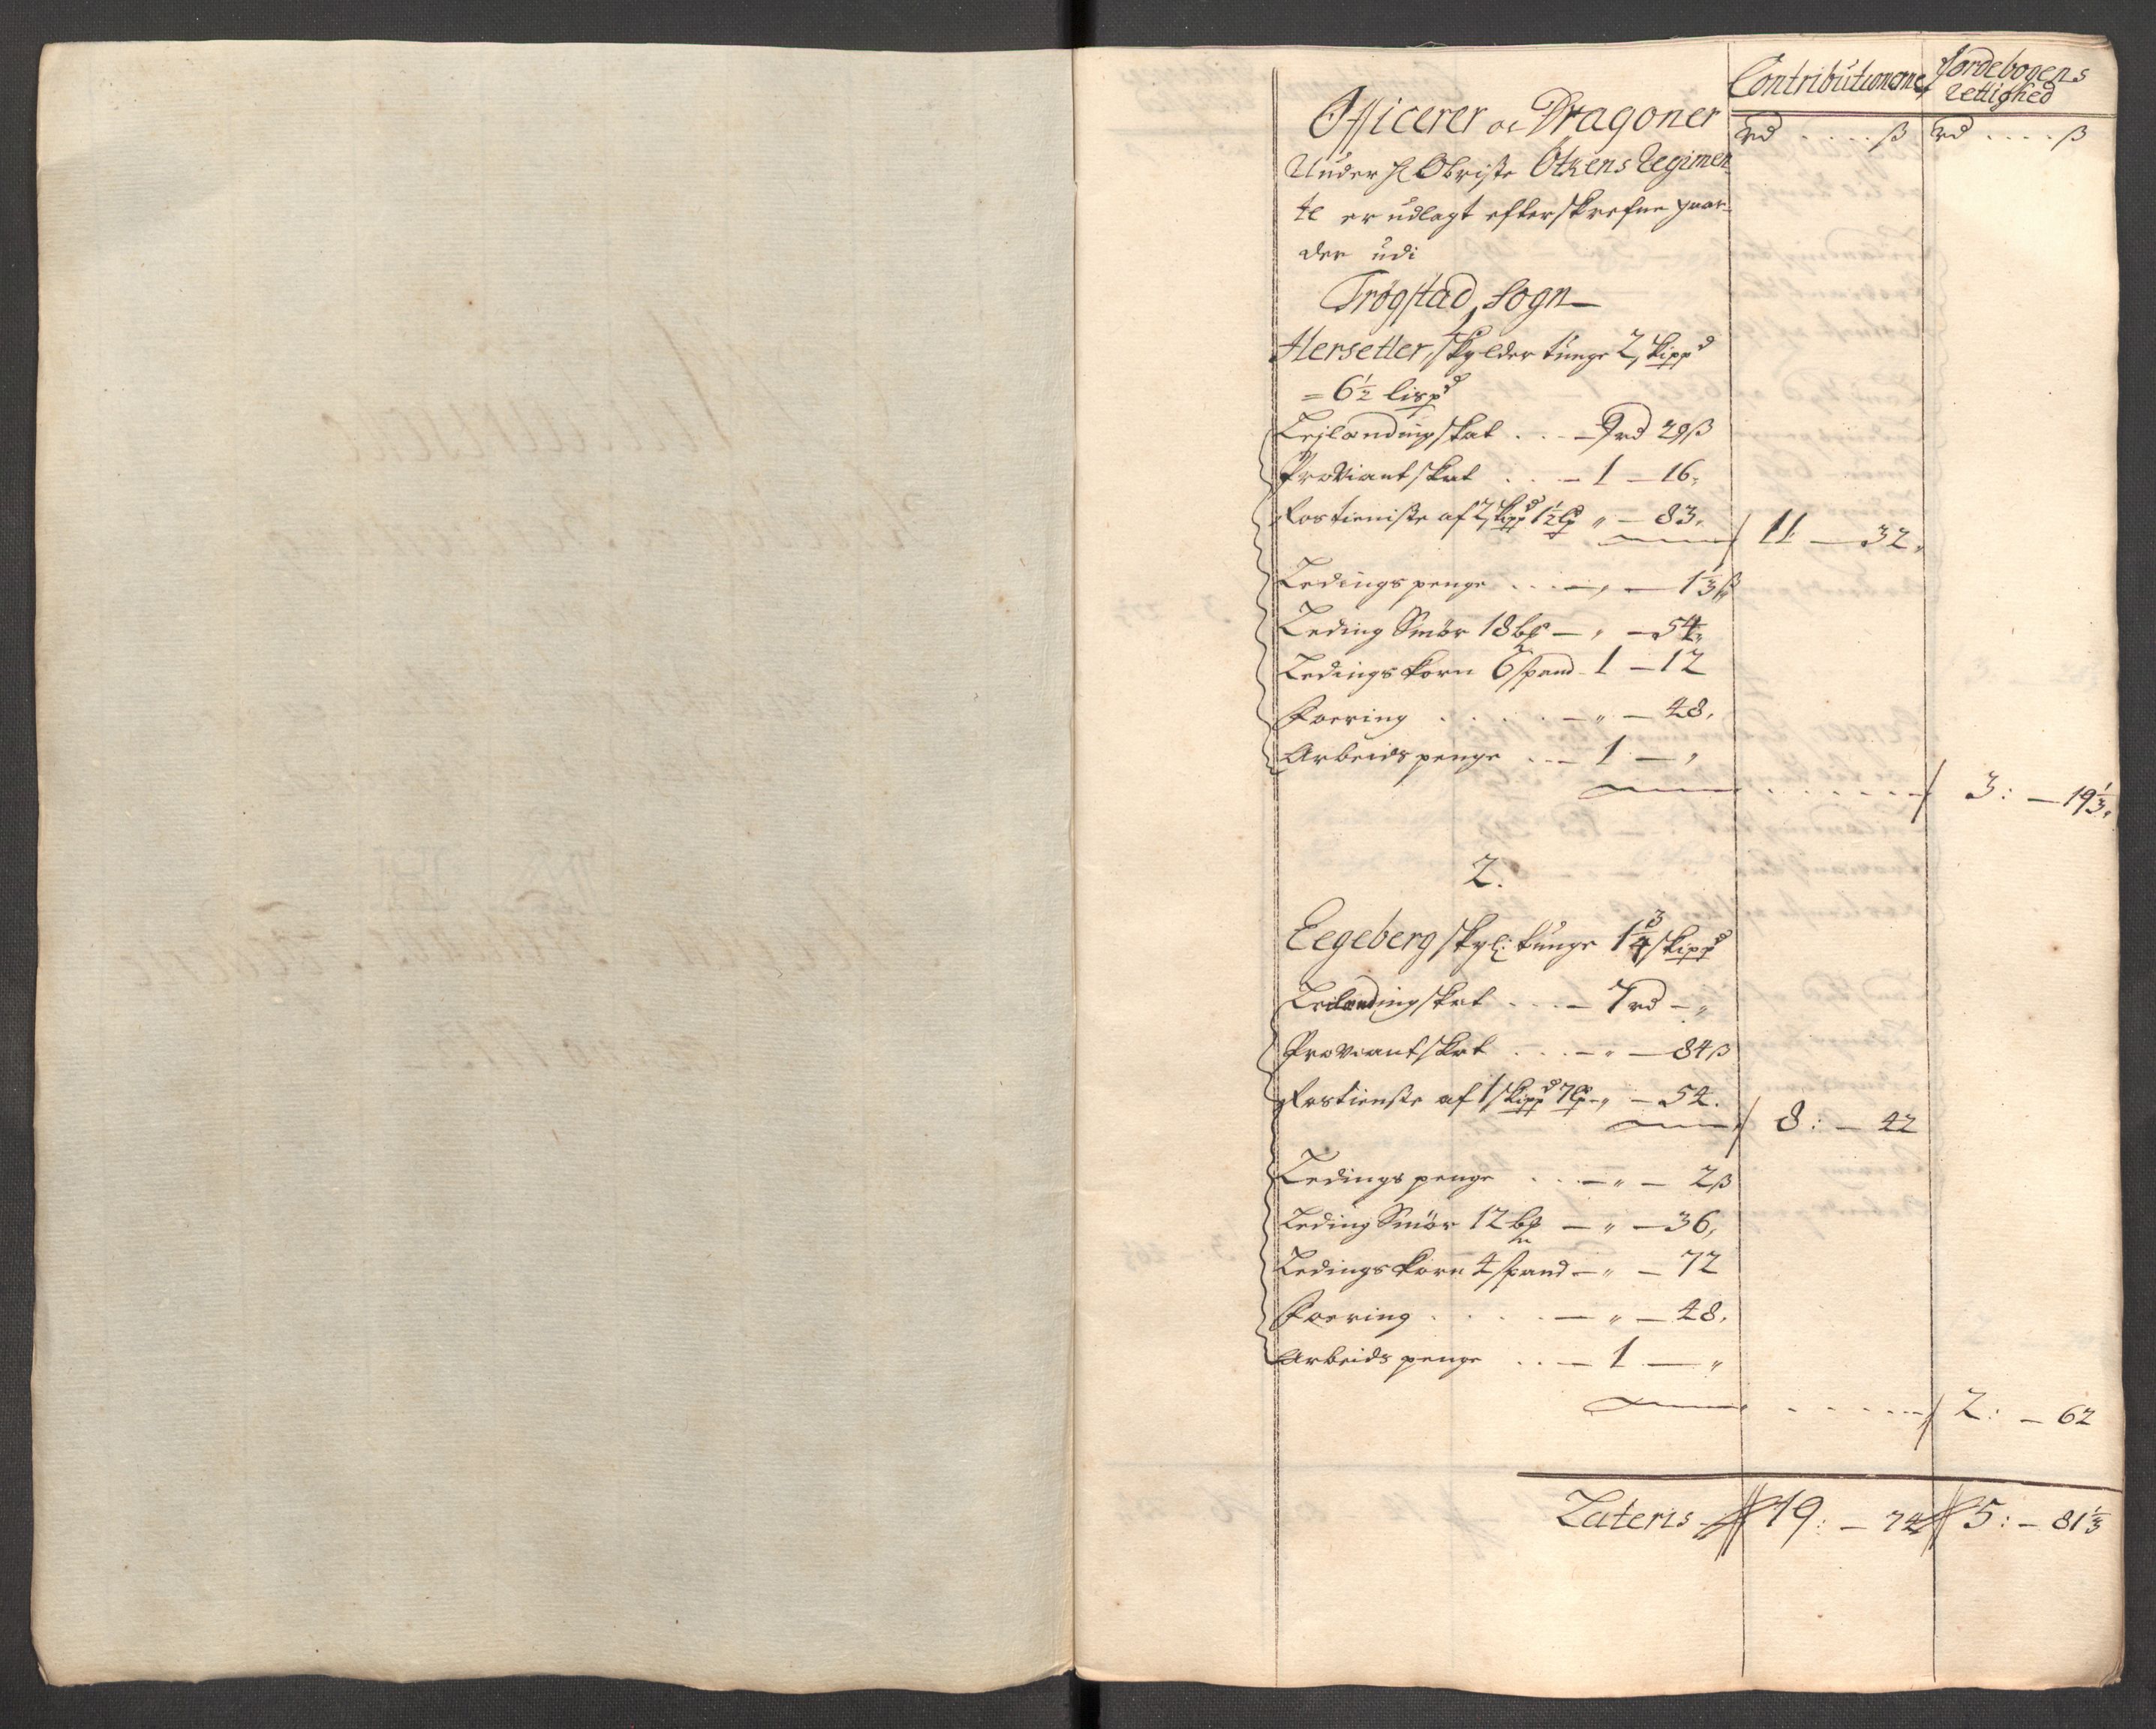 Contributionerne Jordebogens
Rettighed
Officerer oc Dragoner rd . . . . ß rd . . . . ß
Under H Obriste Ötkens Regimen
te er udlagt efterskrefne gaar-
der udi
Trögstad Sogn
Hersetter, skylder tunge 2 skippd
= 6½ lispd
Leilandingskat . . . 9rd 29ß
Proviantskat . . . 1 — 16,
Rostieniste af 2 skippd 1½ lp „ — 83, 11 — 32,
Ledingspenge . . . „ — 1⅓ß
Leding Smör 18 bp — „ — 54,
Ledings korn 6 spand 1 — 12
Foering . . . . — „ — 48,
Arbeids penge . . . 1 — „
3: — 19⅓,
2.
Eegeberg skyl: tunge 1¾ skippd
Leilandingskat . . . 7rd — „
Proviantskat . . . — „ — 84ß
Rostienste af 1 skippd 7 lp — „ — 54. 8: — 42
Ledings penge . . . — „ — 2ß
Leding Smör 12 bp — „ — 36,
Ledings korn 4 spand — „ — 72
Foering . . . . — „ — 48,
Arbeids penge . . . 1 — „
2: — 62
Lateris 19: — 74 5: — 81⅓